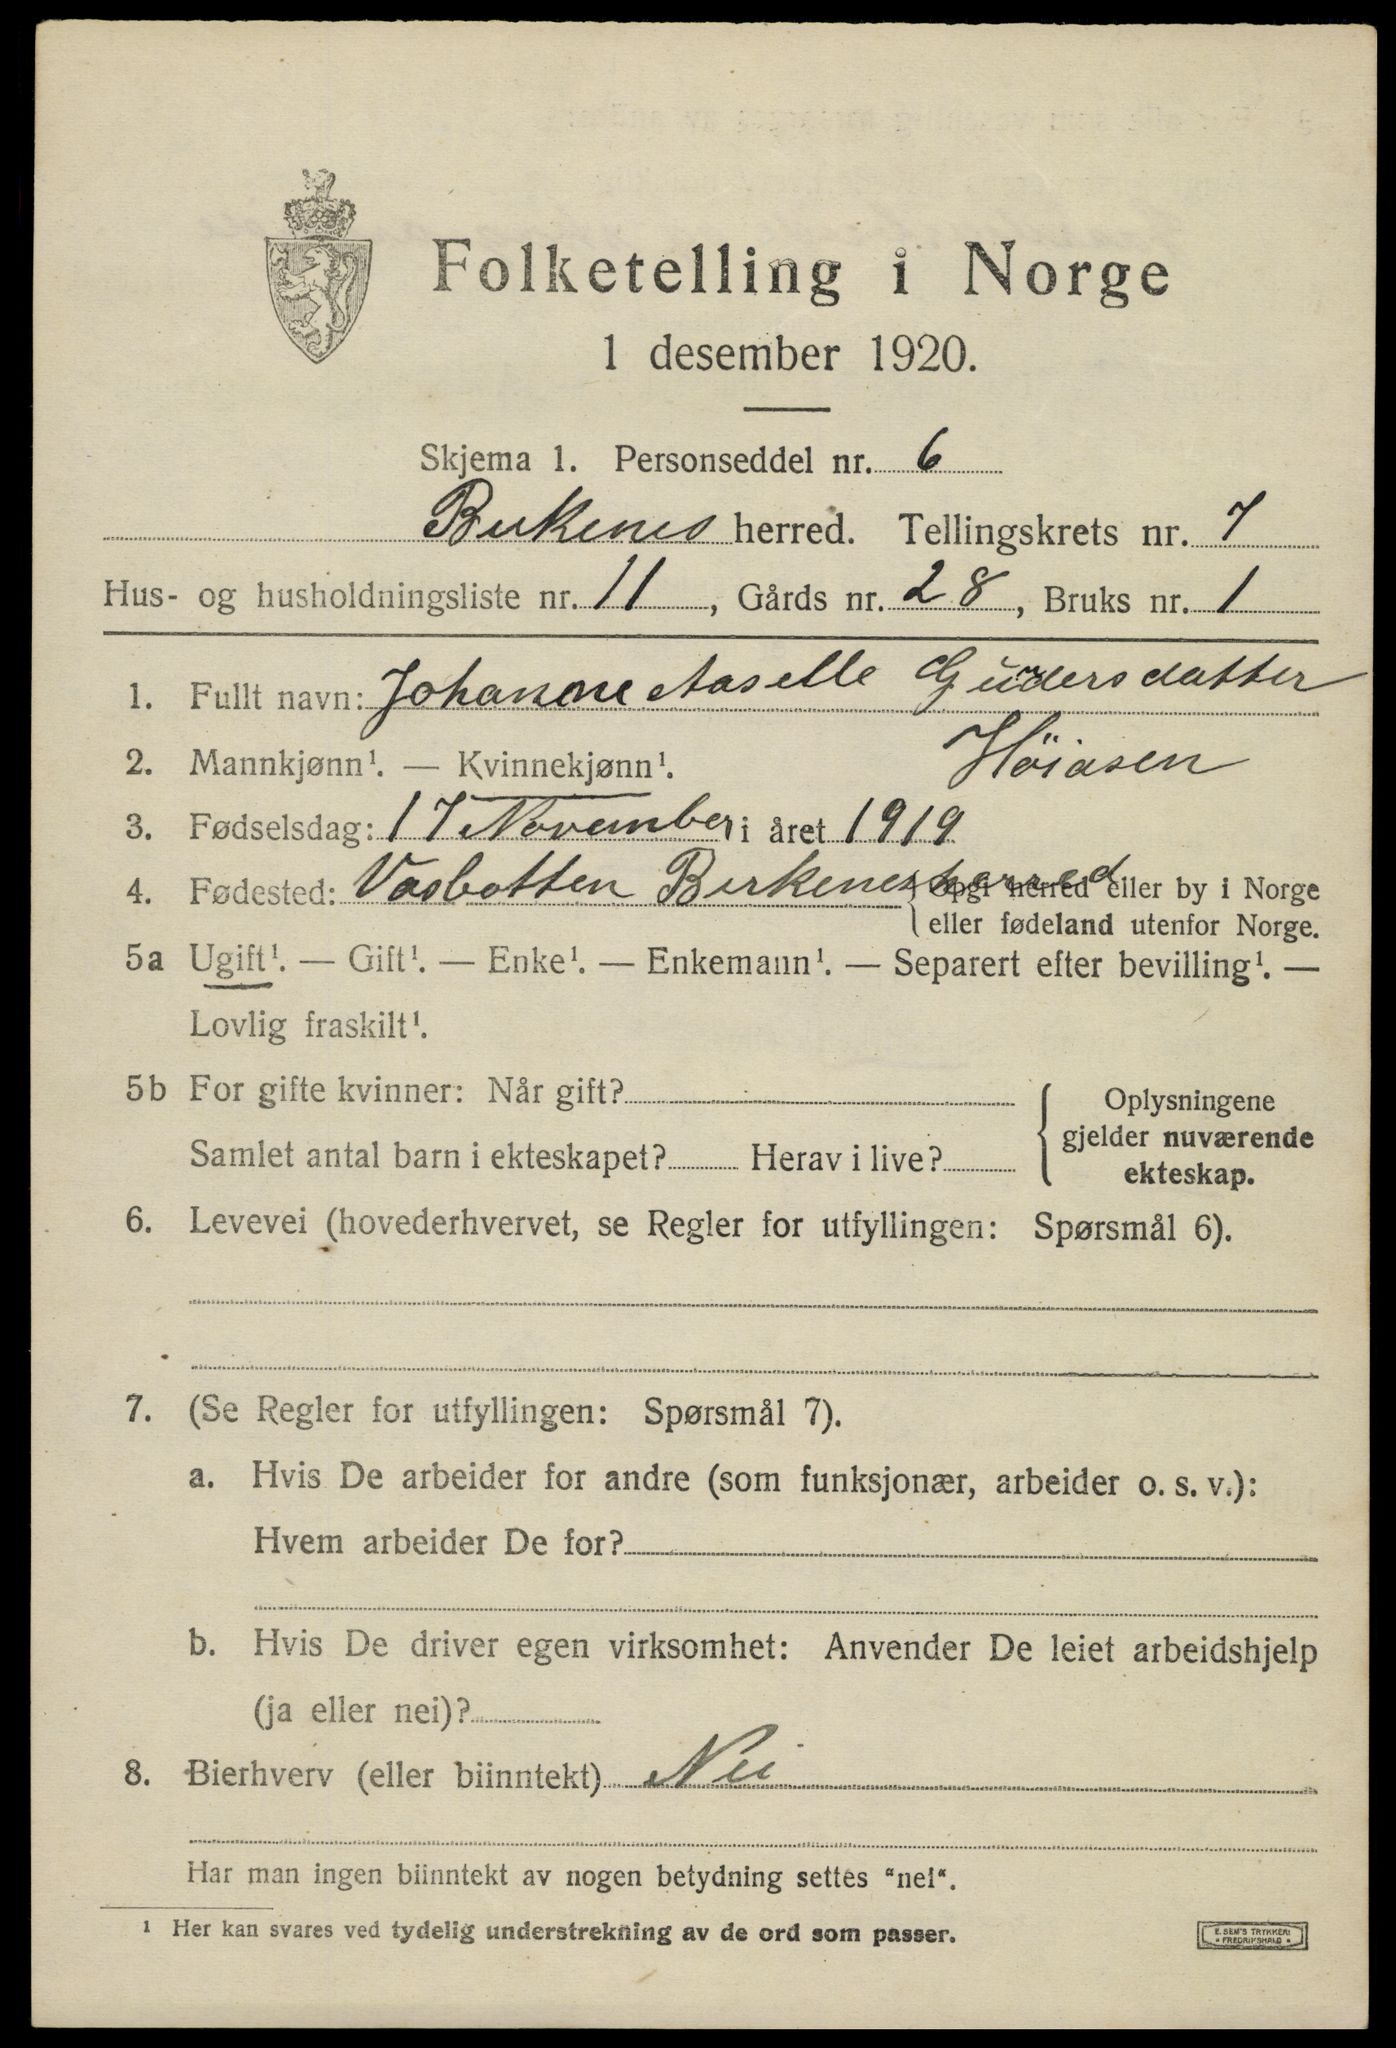 Folketelling i Norge
1 desember 1920.
Skjema 1. Personseddel nr. 6
Birkenes herred. Tellingskrets nr. 7
Hus- og husholdningsliste nr. 11, Gårds nr. 28, Bruks nr. 1
1. Fullt navn: Johanne Aaselle Gundersdatter
Höiasen
2. Mannkjønn¹. — Kvinnekjønn¹.
3. Fødselsdag: 17 November i året 1919
4. Fødested: Vasbotten Birkenes herred { Opgi herred eller by i Norge
eller fødeland utenfor Norge.
5a Ugift¹. — Gift¹. — Enke¹. — Enkemann¹. — Separert efter bevilling¹. —
Lovlig fraskilt¹.
5b For gifte kvinner: Når gift?
Samlet antal barn i ekteskapet? Herav i live?
{ Oplysningene
gjelder nuværende
ekteskap.
6. Levevei (hovederhvervet, se Regler for utfyllingen: Spørsmål 6).
7. (Se Regler for utfyllingen: Spørsmål 7).
a. Hvis De arbeider for andre (som funksjonær, arbeider o. s. v.):
Hvem arbeider De for?
b. Hvis De driver egen virksomhet: Anvender De leiet arbeidshjelp
(ja eller nei)?
8. Bierhverv (eller biinntekt) Nei
Har man ingen biinntekt av nogen betydning settes "nei".
¹ Her kan svares ved tydelig understrekning av de ord som passer.
E. SEM'S TRYKKERI
FREDRIKSHALD